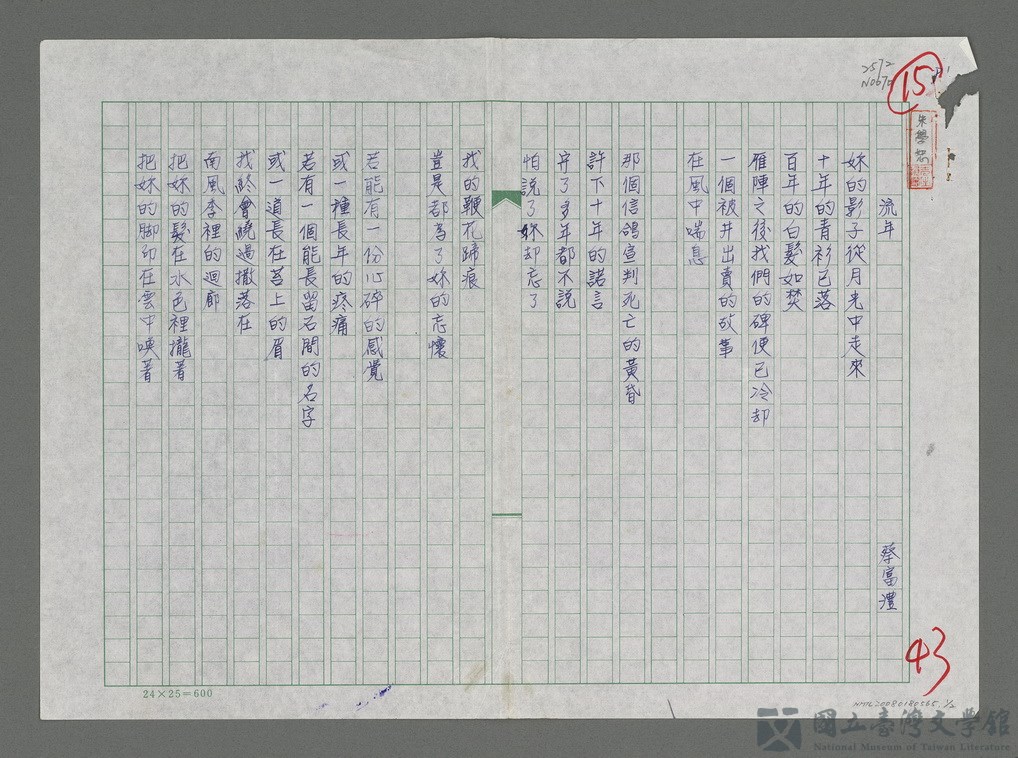 流年
蔡富澧
妳的影子從月光中走來
十年的青衫已落
百年的白髮如焚
雁陣之後我們的碑便已冷却
一個被井出賣的故事
在風中喘息
那個信鴿宣判死亡的黃昏
許下十年的諾言
守了多年都不說
怕說了妳却忘了
我的鞭花蹄痕
豈是都為了妳的忘懷
若能有一份心碎的感覺
或一種長年的疼痛
若有一個能長留石間的名字
或一道長在苔上的眉
我終會繞過撒落在
南風季裡的迴廊
把妳的髮在水色裡攏著
把妳的脚印在雲中喚著
15
2572
朱學恕
43
24×25=600
NMTL20080180565 1/2
國立臺灣文學館
National Museum of Taiwan Literature